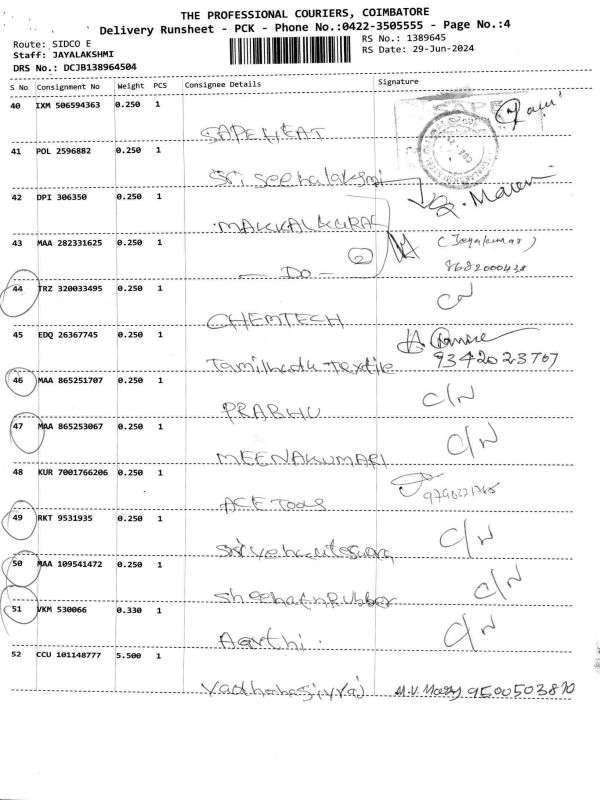 THE PROFESSIONAL COURIERS, COIMBATORE
Delivery Runsheet - PCK - Phone No.:0422-3505555 - Page No.:4
Route: SIDCO E
RS No.: 1389645
Staff: JAYALAKSHMI
RS Date: 29-Jun-2024
DRS No.: DCJB138964504
S No Consignment No Weight PCS Consignee Details Signature
40 IXM 506594363 0.250 1
SAPE HEAT
41 POL 2596882 0.250 1
Sri seethalakshmi
42 DPI 306350 0.250 1
MAKKALKURAL
43 MAA 282331625 0.250 1 (Jayakumar)
— Do — 2 8682000438
44 TRZ 320033495 0.250 1
CHEMTECH
45 EDQ 26367745 0.250 1
Tamilnadu Textile 9342023707
46 MAA 865251707 0.250 1 C/N
PRABHU
47 MAA 865253067 0.250 1 C/N
MEENAKUMARI
48 KUR 7001766206 0.250 1
ACE Tools
49 RKT 9531935 0.250 1 C/N
Sri venkateswara
50 MAA 109541472 0.250 1 C/N
Rubber
51 VKM 530066 0.330 1 C/N
Aarthi.
52 CCU 101148777 5.500 1
M.V. 9500503810